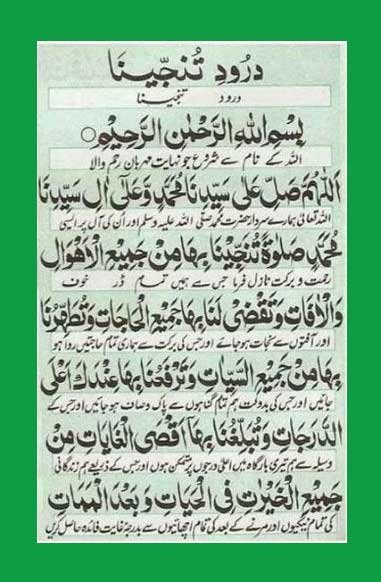 درُودِ تُنجّينا
درود تنجینا
بِسْمِ اللهِ الرَّحْمٰنِ الرَّحِيْمِ ○
اللہ کے نام سے شروع جو نہایت مہربان رحم والا
اَللّٰهُمَّ صَلِّ عَلٰى سَيِّدِنَا مُحَمَّدٍ وَّعَلٰٓى اٰلِ سَيِّدِنَا
اللہ تعالیٰ ہمارے سردار حضرت محمد صلی اللہ علیہ وسلم اور اُن کی آل پر ایسی
مُحَمَّدٍ صَلٰوةً تُنَجِّيْنَا بِهَا مِنْ جَمِيْعِ الْاَهْوَالِ
رحمت و برکت نازل فرما جس سے ہمیں تمام ڈر خوف
وَالْاٰفَاتِ وَتَقْضِيْ لَنَا بِهَا جَمِيْعَ الْحَاجَاتِ وَتُطَهِّرُنَا
اور آفتوں سے نجات ہو جائے اور جس کی برکت سے ہماری تمام حاجتیں روا ہو
بِهَا مِنْ جَمِيْعِ السَّيِّاٰتِ وَتَرْفَعُنَا بِهَا عِنْدَكَ اَعْلَى
جائیں اور جس کی بدولت ہم تمام گناہوں سے پاک و صاف ہو جائیں اور جس کے
الدَّرَجَاتِ وَتُبَلِّغُنَا بِهَآ اَقْصَى الْغَايَاتِ مِنْ
وسیلہ سے ہم تیری بارگاہ میں اعلیٰ درجوں پر متمکن ہوں اور جس کے ذریعے ہم زندگانی
جَمِيْعِ الْخَيْرٰتِ فِي الْحَيَاتِ وَبَعْدَ الْمَمَاتِ
کی تمام نیکیوں اور مرنے کے بعد کی تمام اچھائیوں سے بدرجہ غایت فائدہ حاصل کریں